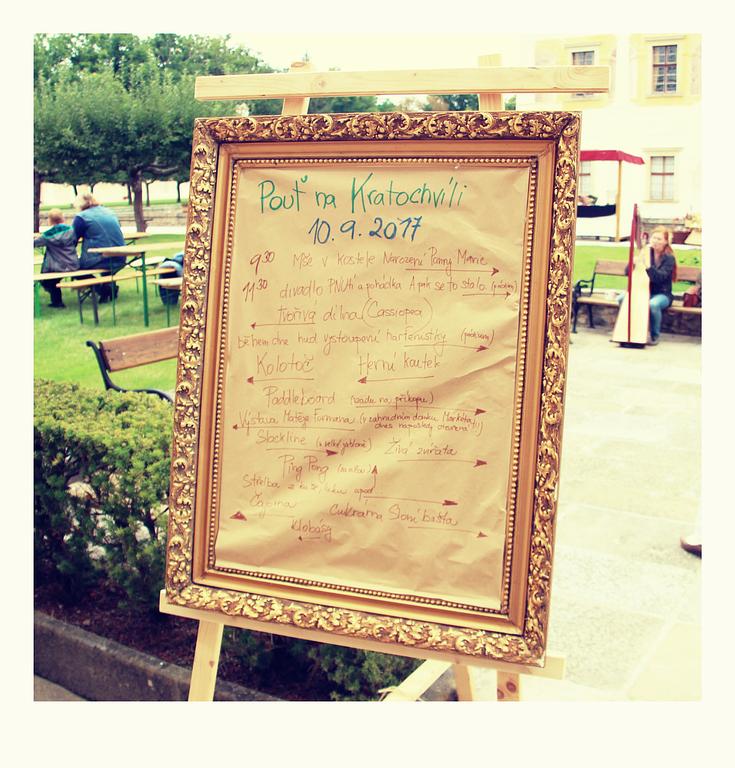 Pouť na Kratochvíli
10.9.2017
9 30 Mše v kostele Narození Panny Marie
11 30 divadlo PNUtí a pohádka A pak se to stalo.
Tvořivá dílna (Cassiopea)
během dne hudební vystoupení harfenistky
Kolotoč Herní koutek
Paddleboard (vzadu na příkopu)
Výstava Matěje Formana (v zahradním domku
dnes naposledy otevřena!!!)
Slackline
Živá zvířata
Ping Pong
Střelba z kuše, luku apod
Čajovna Cukrárna Sloní bašta
Klobásy